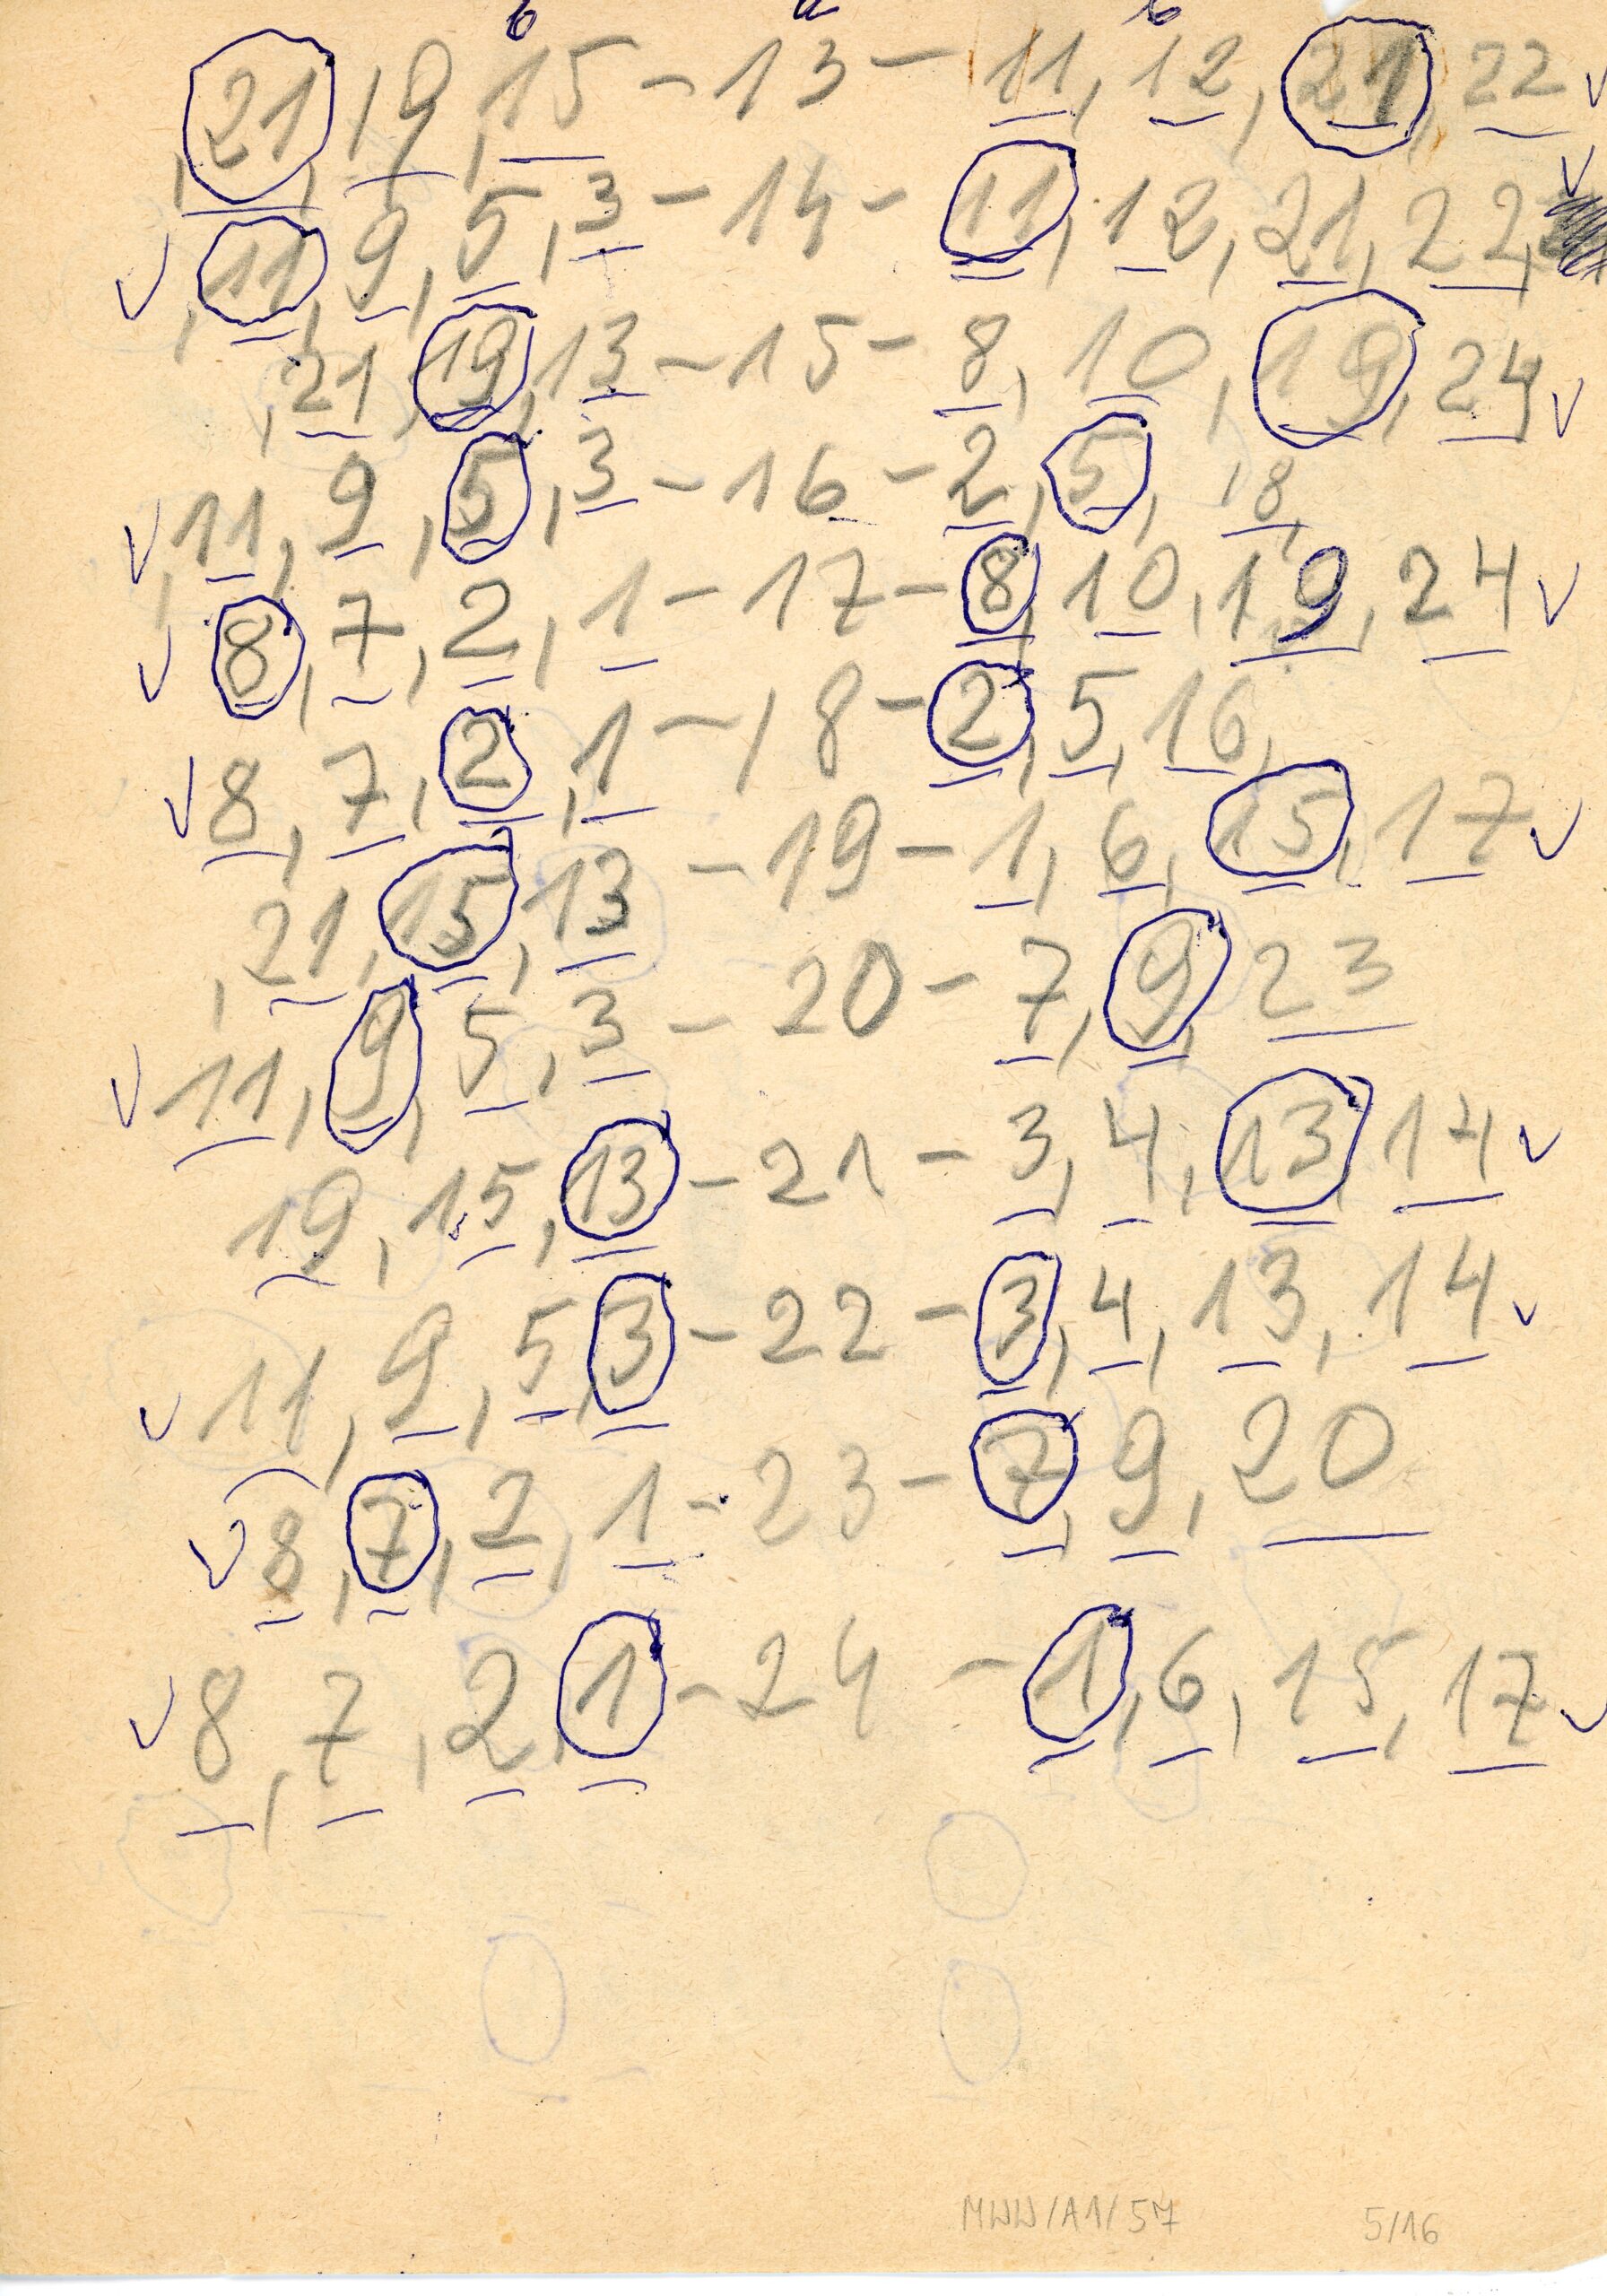 b a b
21, 19, 15 - 13 - 11, 12, 21, 22 ✓
✓ 11, 9, 5, 3 - 14 - 11, 12, 21, 22,
21, 19, 13 - 15 - 8, 10, 19, 24 ✓
✓ 11, 9, 5, 3 - 16 - 2, 5, 18,
✓ 8, 7, 2, 1 - 17 - 8, 10, 19, 24 ✓
✓ 8, 7, 2, 1 - 18 - 2, 5, 16,
, 21, 15, 13 - 19 - 1, 6, 15, 17 ✓
✓ 11, 9, 5, 3 - 20 - 7, 9, 23
19, 15, 13 - 21 - 3, 4, 13, 14 ✓
✓ 11, 9, 5, 3 - 22 - 3, 4, 13, 14 ✓
✓ 8, 7, 2, 1 - 23 - 7, 9, 20
✓ 8, 7, 2, 1 - 24 - 1, 6, 15, 17 ✓
MWW/A1/57 5/16